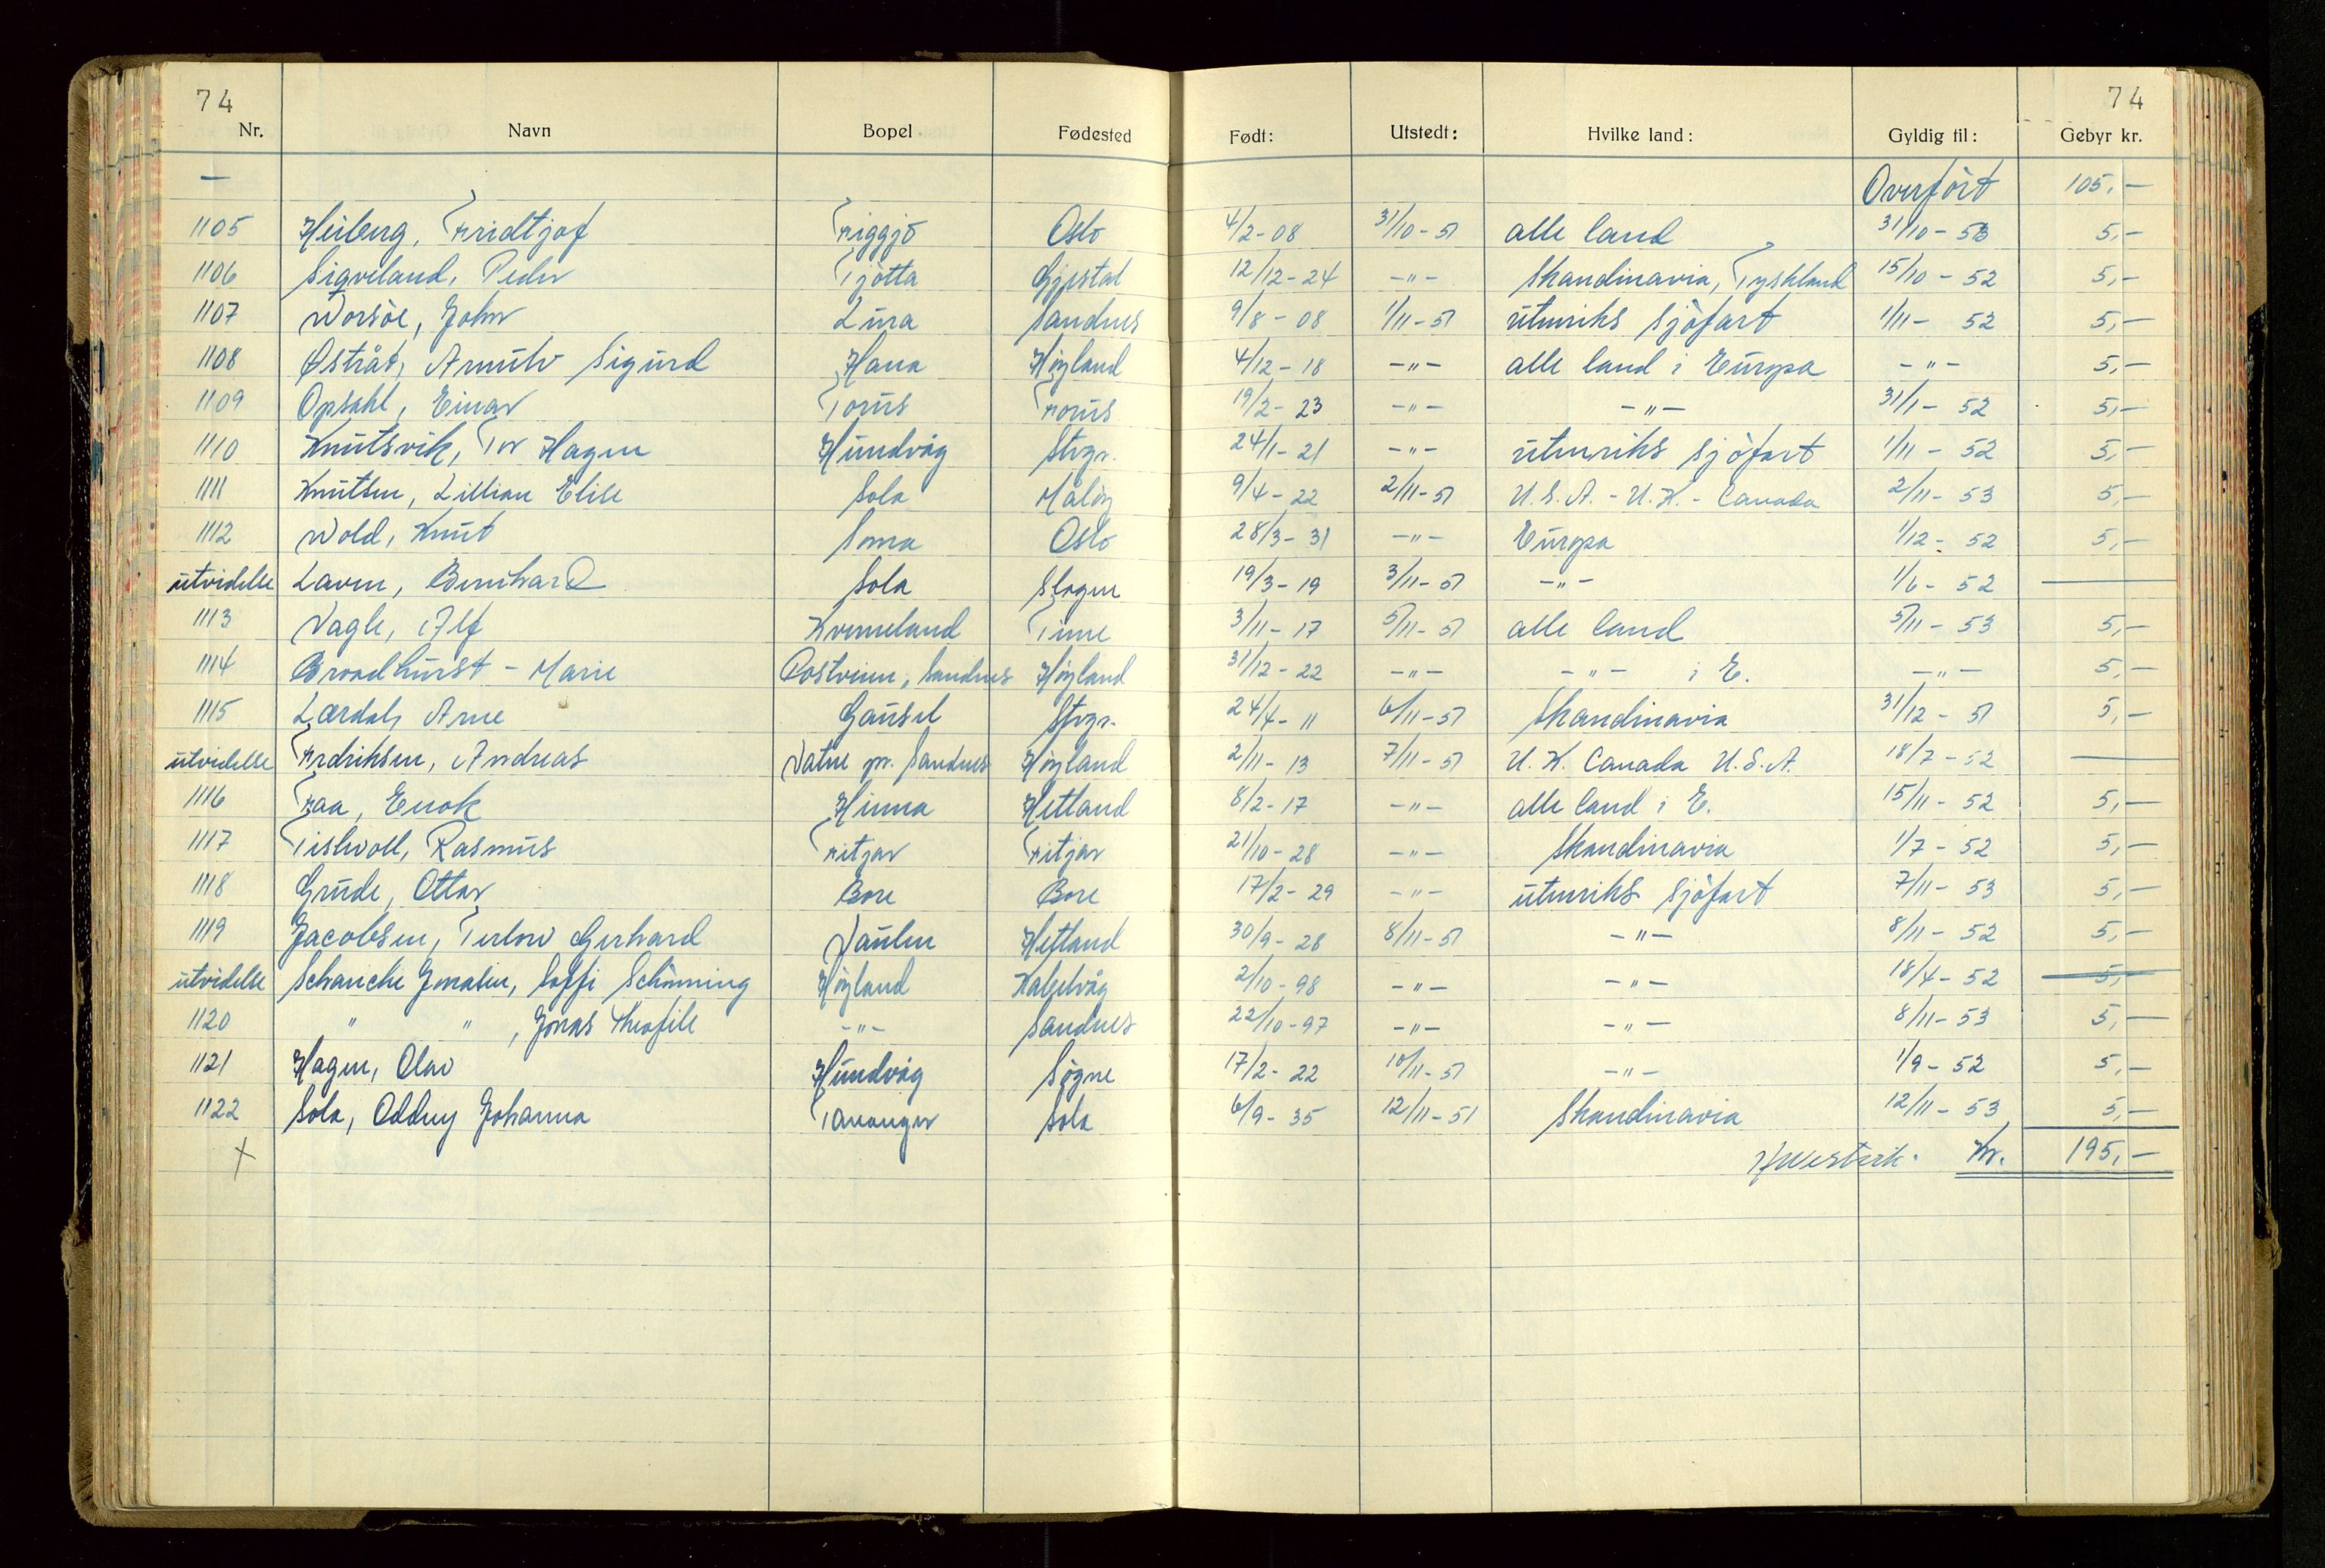 74 74
Nr. Navn Bopel Fødested Født: Utstedt: Hvilke land: Gyldig til: Gebyr kr.
— Overført 105,-
1105 Heiberg, Fridtjof Figgjo Oslo 4/2-08 31/10-51 alle land 31/10-53 5,-
1106 Sigveland, Peder Tjøtta Gjestal 12/12-24 -"- Skandinavia, Tyskland 15/10-52 5,-
1107 Worsøe, John Lura Sandnes 9/8-08 1/11-51 utenriks sjøfart 1/11-52 5,-
1108 Østråt, Arnulv Sigurd Hana Høyland 4/12-18 -"- alle land i Europa -"- 5,-
1109 Opsahl, Einar Forus Forus 19/2-23 -"- -"- 31/1-52 5,-
1110 Knutsvik, Tor Hagen Hundvåg Stvgr. 24/1-21 -"- utenriks sjøfart 1/11-52 5,-
1111 Knutsen, Lillian Elise Sola Måløy 9/4-22 2/11-51 U.S.A. - U.K. - Canada 2/11-53 5,-
1112 Wold, Knut Soma Oslo 28/3-31 -"- Europa 1/12-52 5,-
utvidelse Laven, Bernhard Sola Slagen 19/3-19 3/11-51 -"- 1/6-52 —
1113 Vagle, Alf Kverneland Time 3/11-17 5/11-51 alle land 5/11-53 5,-
1114 Broadhurst - Marie Postveien, Sandnes Høyland 31/12-22 -"- -"- i E. -"- 5,-
1115 Lærdal, Arne Gausel Stvgr. 24/4-11 6/11-51 Skandinavia 31/12-51 5,-
utvidelse Fredriksen, Andreas Vatne pr. Sandnes Høyland 2/11-13 7/11-51 U.K. Canada U.S.A. 18/7-52 —
1116 Fraa, Enok Hinna Hetland 8/2-17 -"- alle land i E. 15/11-52 5,-
1117 Tislevoll, Rasmus Fitjar Fitjar 21/10-28 -"- Skandinavia 1/7-52 5,-
1118 Grude, Ottar Bore Bore 17/2-29 -"- utenriks sjøfart 7/11-53 5,-
1119 Jacobsen, Terlow Gerhard Vaulen Hetland 30/9-28 8/11-51 -"- 8/11-52 5,-
utvidelse Schanche Jonasen, Soffi Schønning Høyland Kabelvåg 2/10-98 -"- -"- 18/4-52 5,-
1120 " " , Jonas Theofile -"- Sandnes 22/10-97 -"- -"- 8/11-53 5,-
1121 Hagen, Olav Hundvåg Søgne 17/2-22 10/11-51 -"- 1/9-52 5,-
1122 Sola, Oddny Johanna Tananger Sola 6/9-35 12/11-51 Skandinavia 12/11-53 5,-
Kr. 195,-